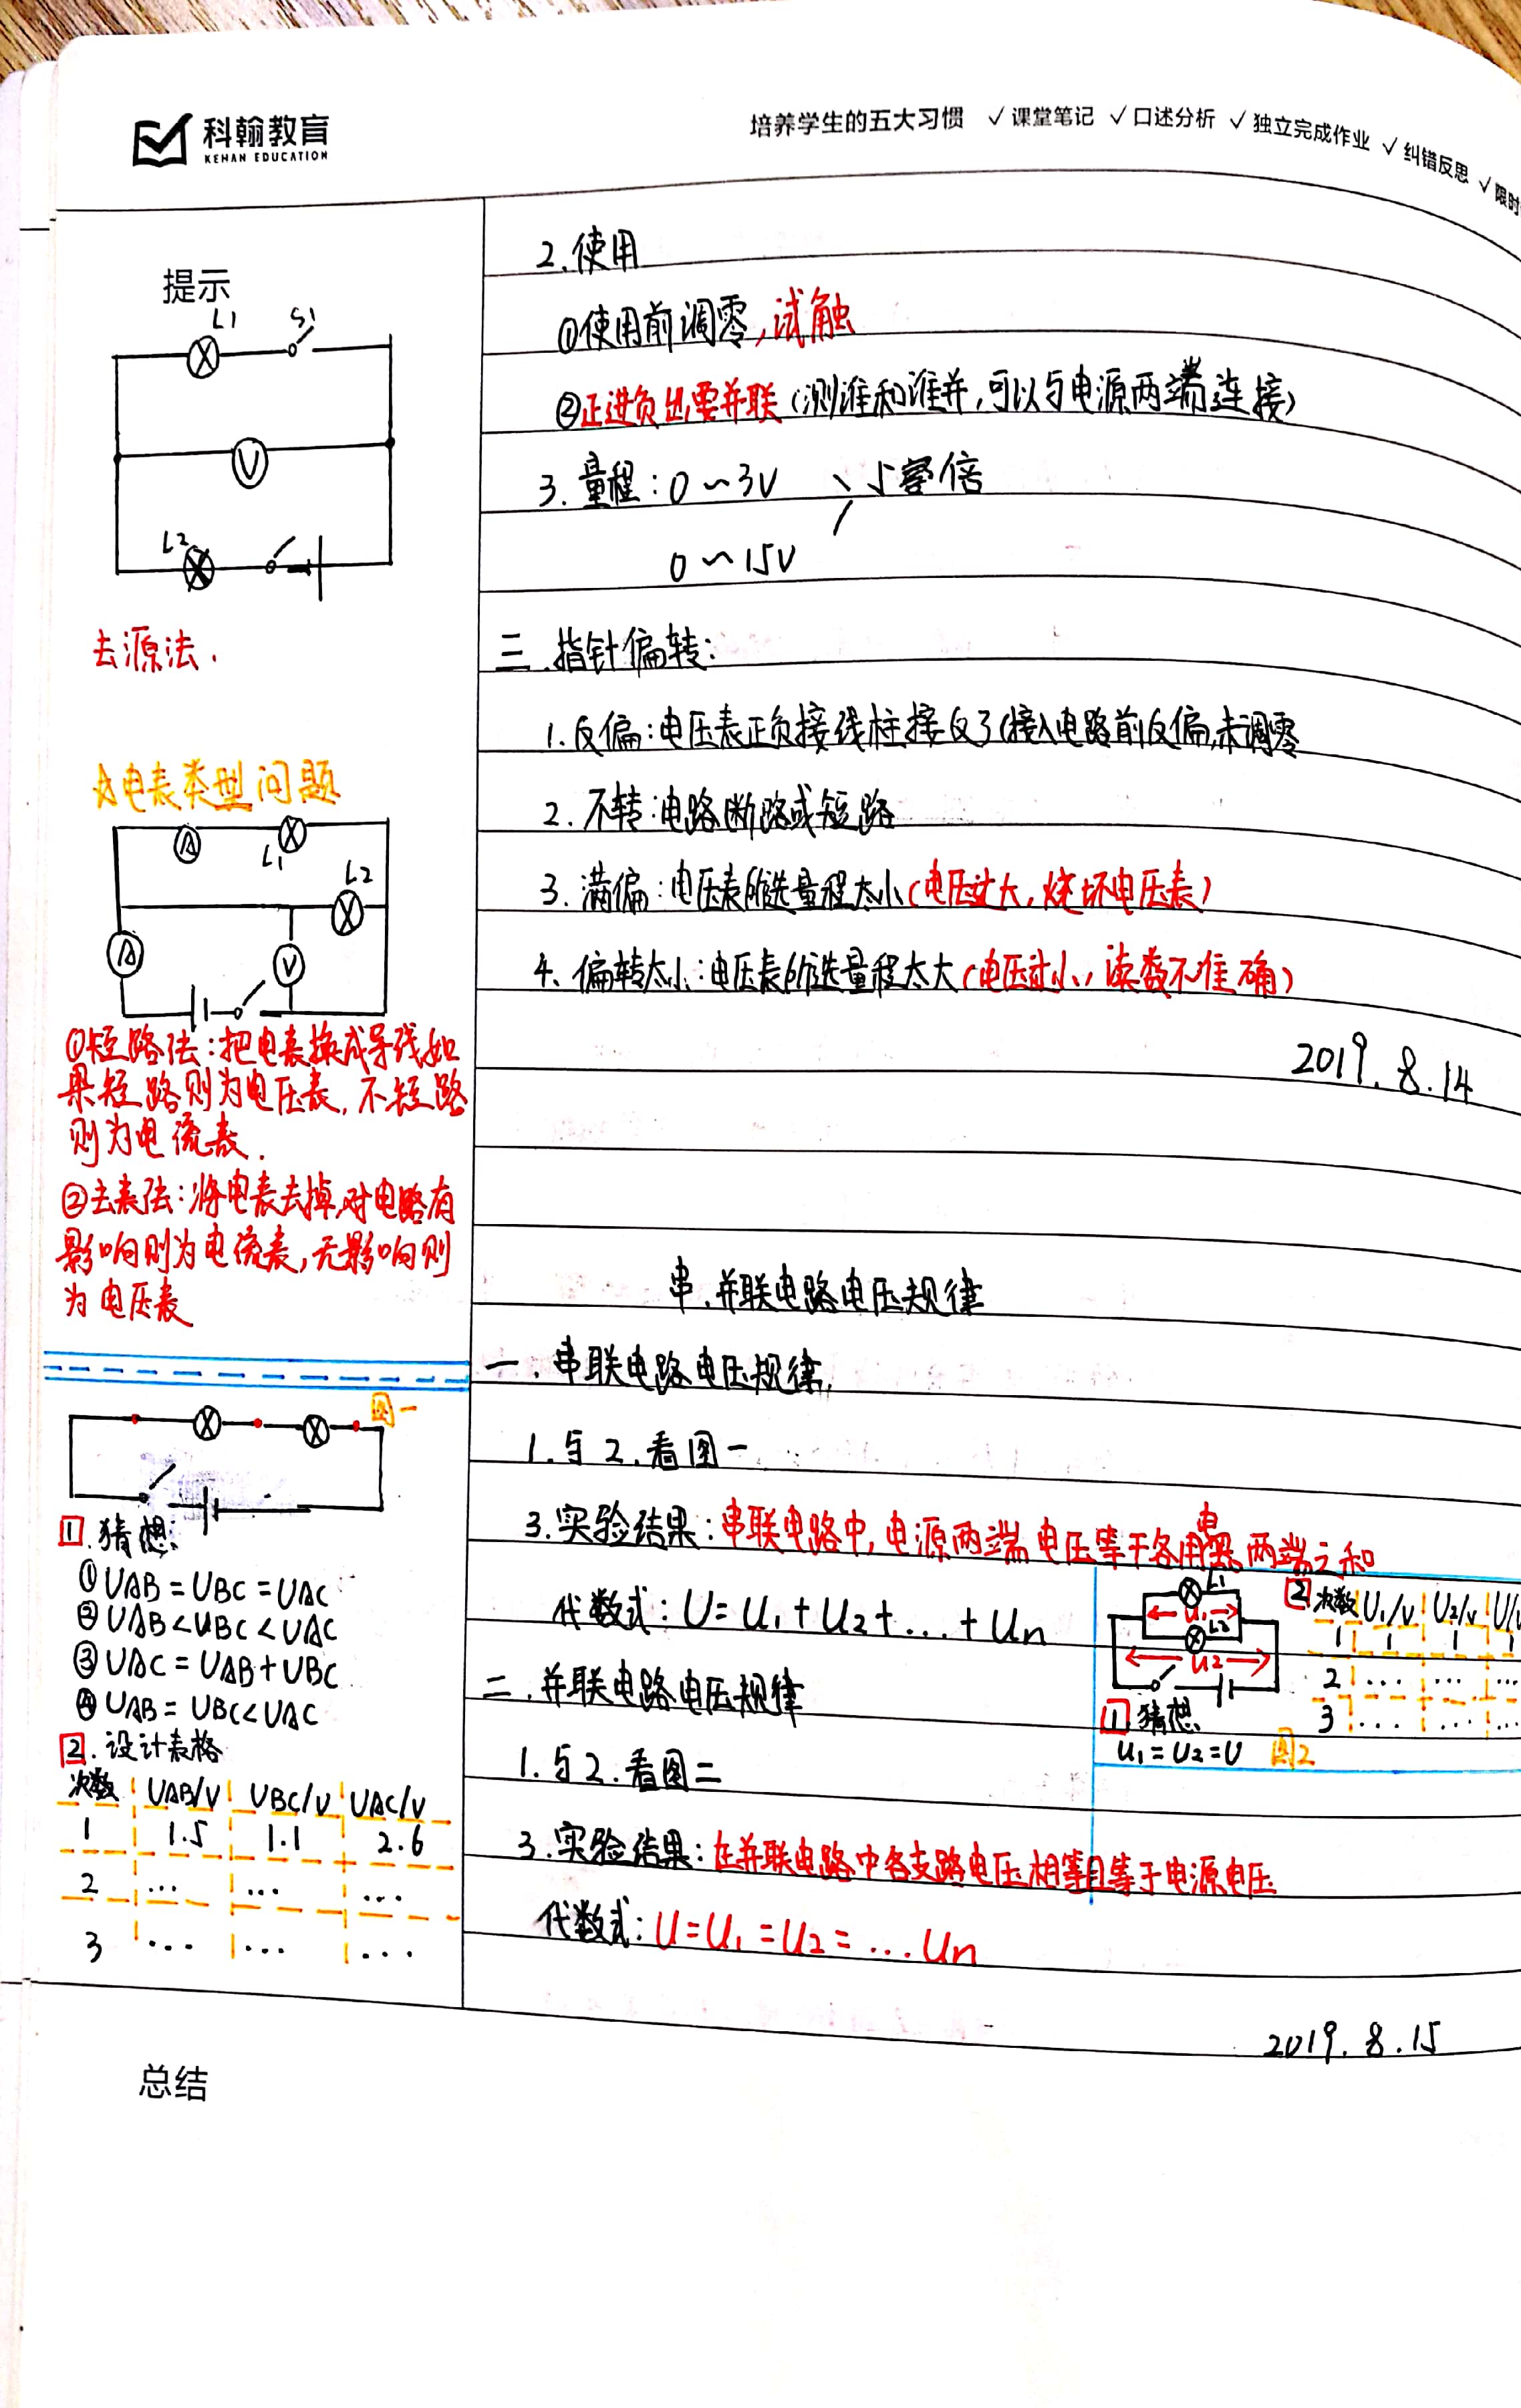 科翰教育
KEHAN EDUCATION
培养学生的五大习惯 ✓课堂笔记 ✓口述分析 ✓独立完成作业 ✓纠错反思 ✓限时
提示
L1 S1
V
L2
去源法.
☆电表类型问题
A L1
L2
A V
①短路法:把电表换成导线如
果短路则为电压表,不短路
则为电流表.
②去表法:将电表去掉,对电路有
影响则为电流表,无影响则
为电压表
图一
1.猜想:
①UAB=UBC=UAC
②UAB<UBC<UAC
③UAC=UAB+UBC
④UAB=UBC<UAC
2.设计表格
次数 UAB/V UBC/V UAC/V
1 1.5 1.1 2.6
2 ... ... ...
3 ... ... ...
2.使用
①使用前调零,试触
②正进负出要并联(测谁和谁并,可以与电源两端连接)
3.量程:0~3V 5倍
0~15V
三.指针偏转:
1.反偏:电压表正负接线柱接反了(接入电路前反偏,未调零
2.不转:电路断路或短路
3.满偏:电压表所选量程太小(电压过大,烧坏电压表)
4.偏转太小:电压表所选量程太大(电压过小,读数不准确)
2019.8.14
串.并联电路电压规律
一.串联电路电压规律,
1.与2.看图一
3.实验结果:串联电路中,电源两端电压等于各用电器两端之和
代数式:U=U1+U2+...+Un
二.并联电路电压规律
1.与2.看图二
3.实验结果:在并联电路中各支路电压相等且等于电源电压
代数式:U=U1=U2=...Un
L1
U1
L2
U2
1.猜想
U1=U2=U 图2
2.次数 U1/V U2/V U/V
1 1 1 1
2 ... ... ...
3 ... ... ...
2019.8.15
总结